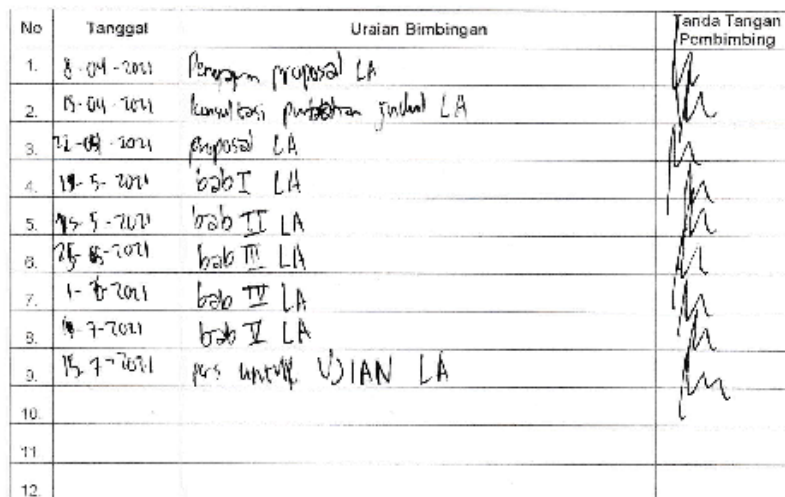 No Tanggal Uraian Bimbingan Tanda Tangan Pembimbing
1. 8-04-2021 proposal LA
2. 15-04-2021 konsultasi judul LA
3. 22- -2021 proposal LA
4. -5-2021 bab I LA
5. -5-2021 bab II LA
6. 25- -2021 bab III LA
7. 1- -2021 bab IV LA
8. -7-2021 bab V LA
9. 15-7-2021 untuk UJIAN LA
10.
11.
12.